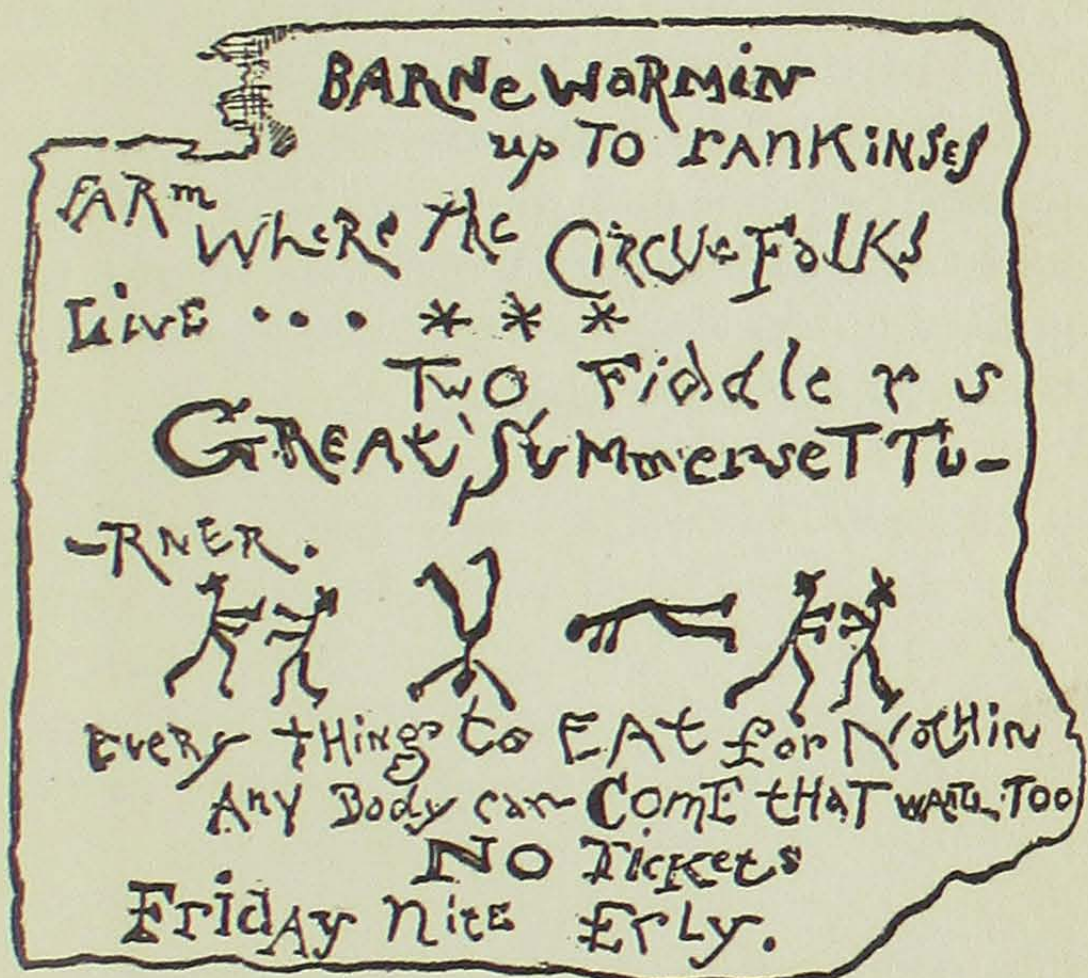 BARNe WoRMiN
up TO rANKiNSes
fARm WheRe the CiRCUs FolKs
LivE ... * * *
TWO Fiddlers
GREAt SuMmerseT Tu-
-RNER.
EvERy tHing to EAt for NotHiN
Any Body can ComE tHaT wants Too
NO TicKets
FridAy NitE ErLy.